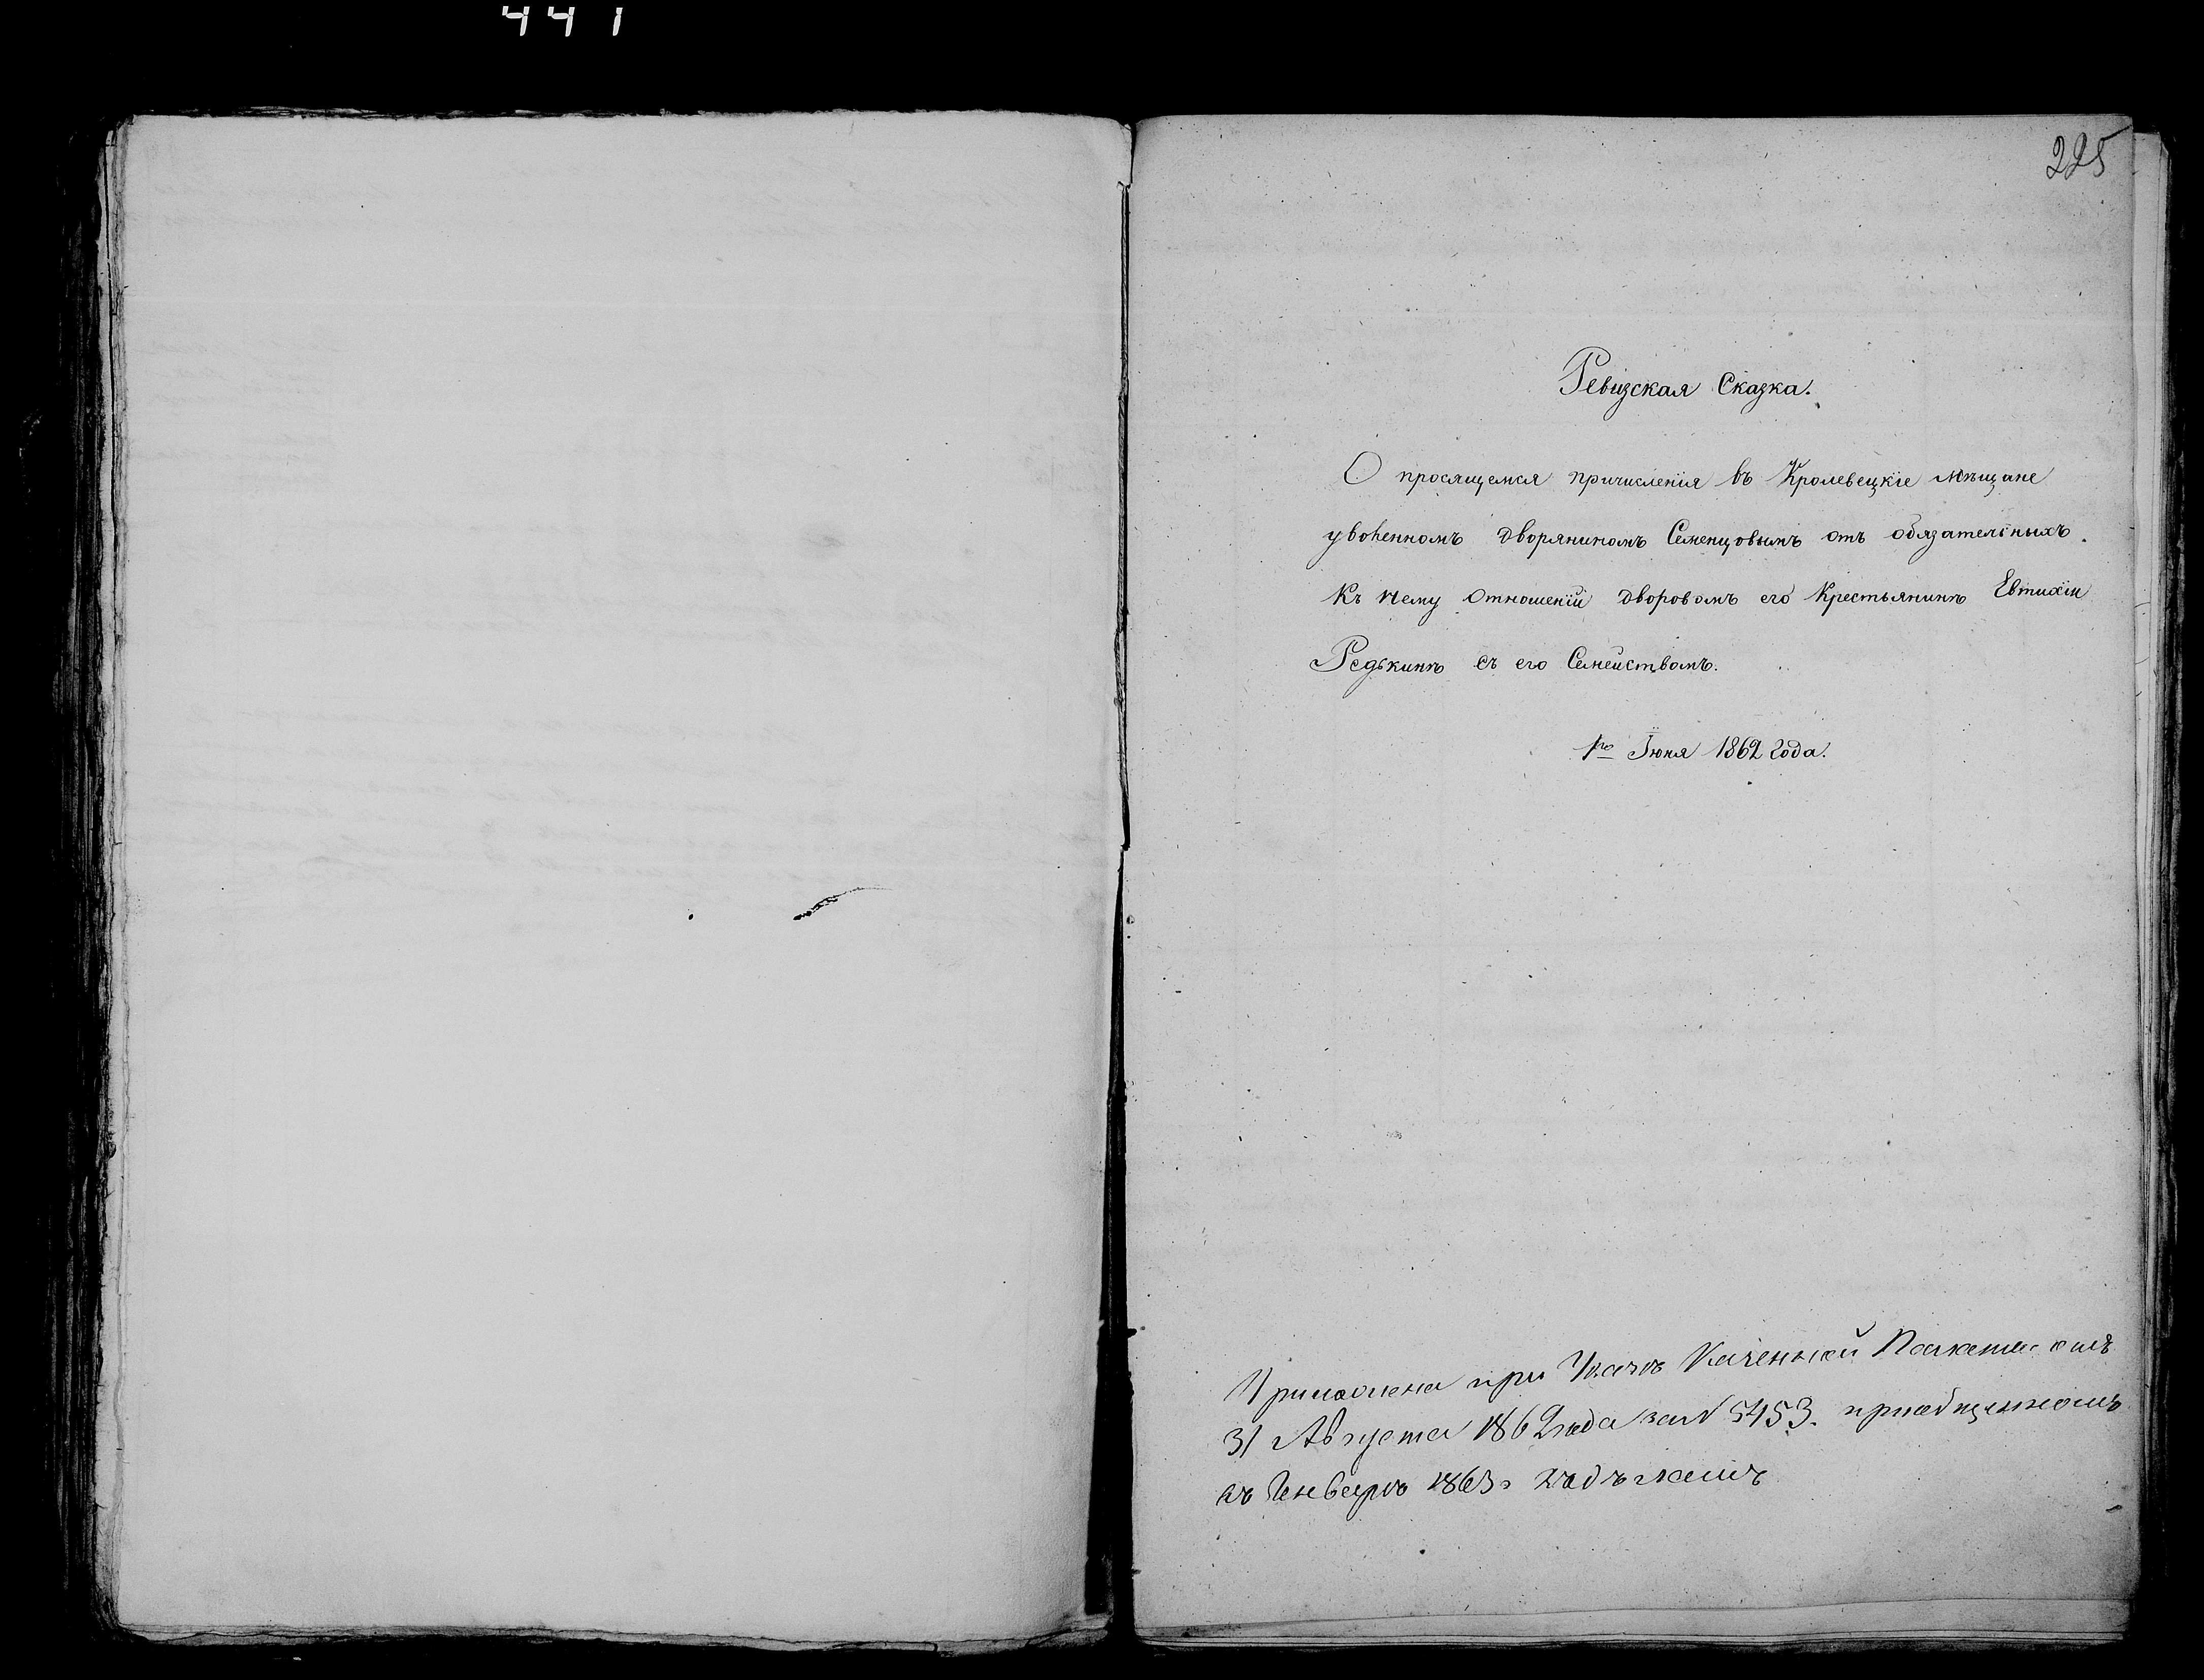 441
225
Ревизская Сказка.
О просящемся причисления въ Кролевецкіе мѣщане
уволенномъ дворяниномъ Семенцовымъ отъ обязательныхъ
къ нему отношеній дворовомъ его крестьянинѣ Евтихіи
Редькинѣ съ его Семействомъ.
1го Іюня 1862 года.
Приложена при Указѣ Казенной Палаты отъ
31 Августа 1862 года за N 5453. приобщенномъ
въ Генварѣ 1863